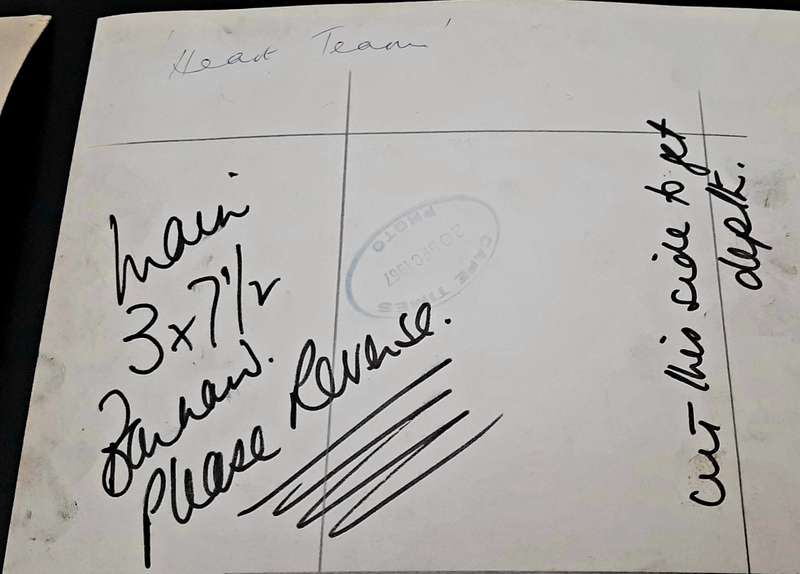 'Heart Team'
Main
3 x 7 1/2
Barnard.
Please Reverse.
CAPE TIMES
20 DEC 1967
PHOTO
cut this side to get
depth.